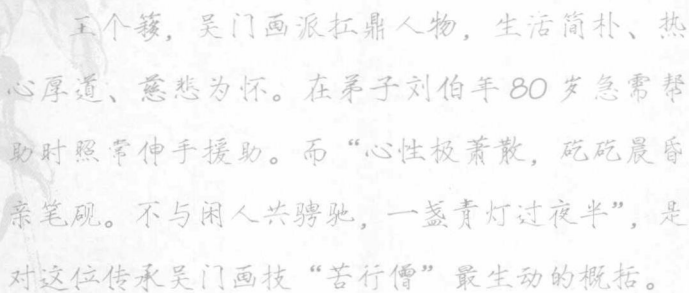 王个簃，吴门画派扛鼎人物，生活简朴、热
心厚道、慈悲为怀。在弟子刘伯年80岁急需帮
助时照常伸手援助。而“心性极萧散，矻矻晨昏
亲笔砚。不与闲人共骋驰，一盏青灯过夜半”，是
对这位传承吴门画技“苦行僧”最生动的概括。